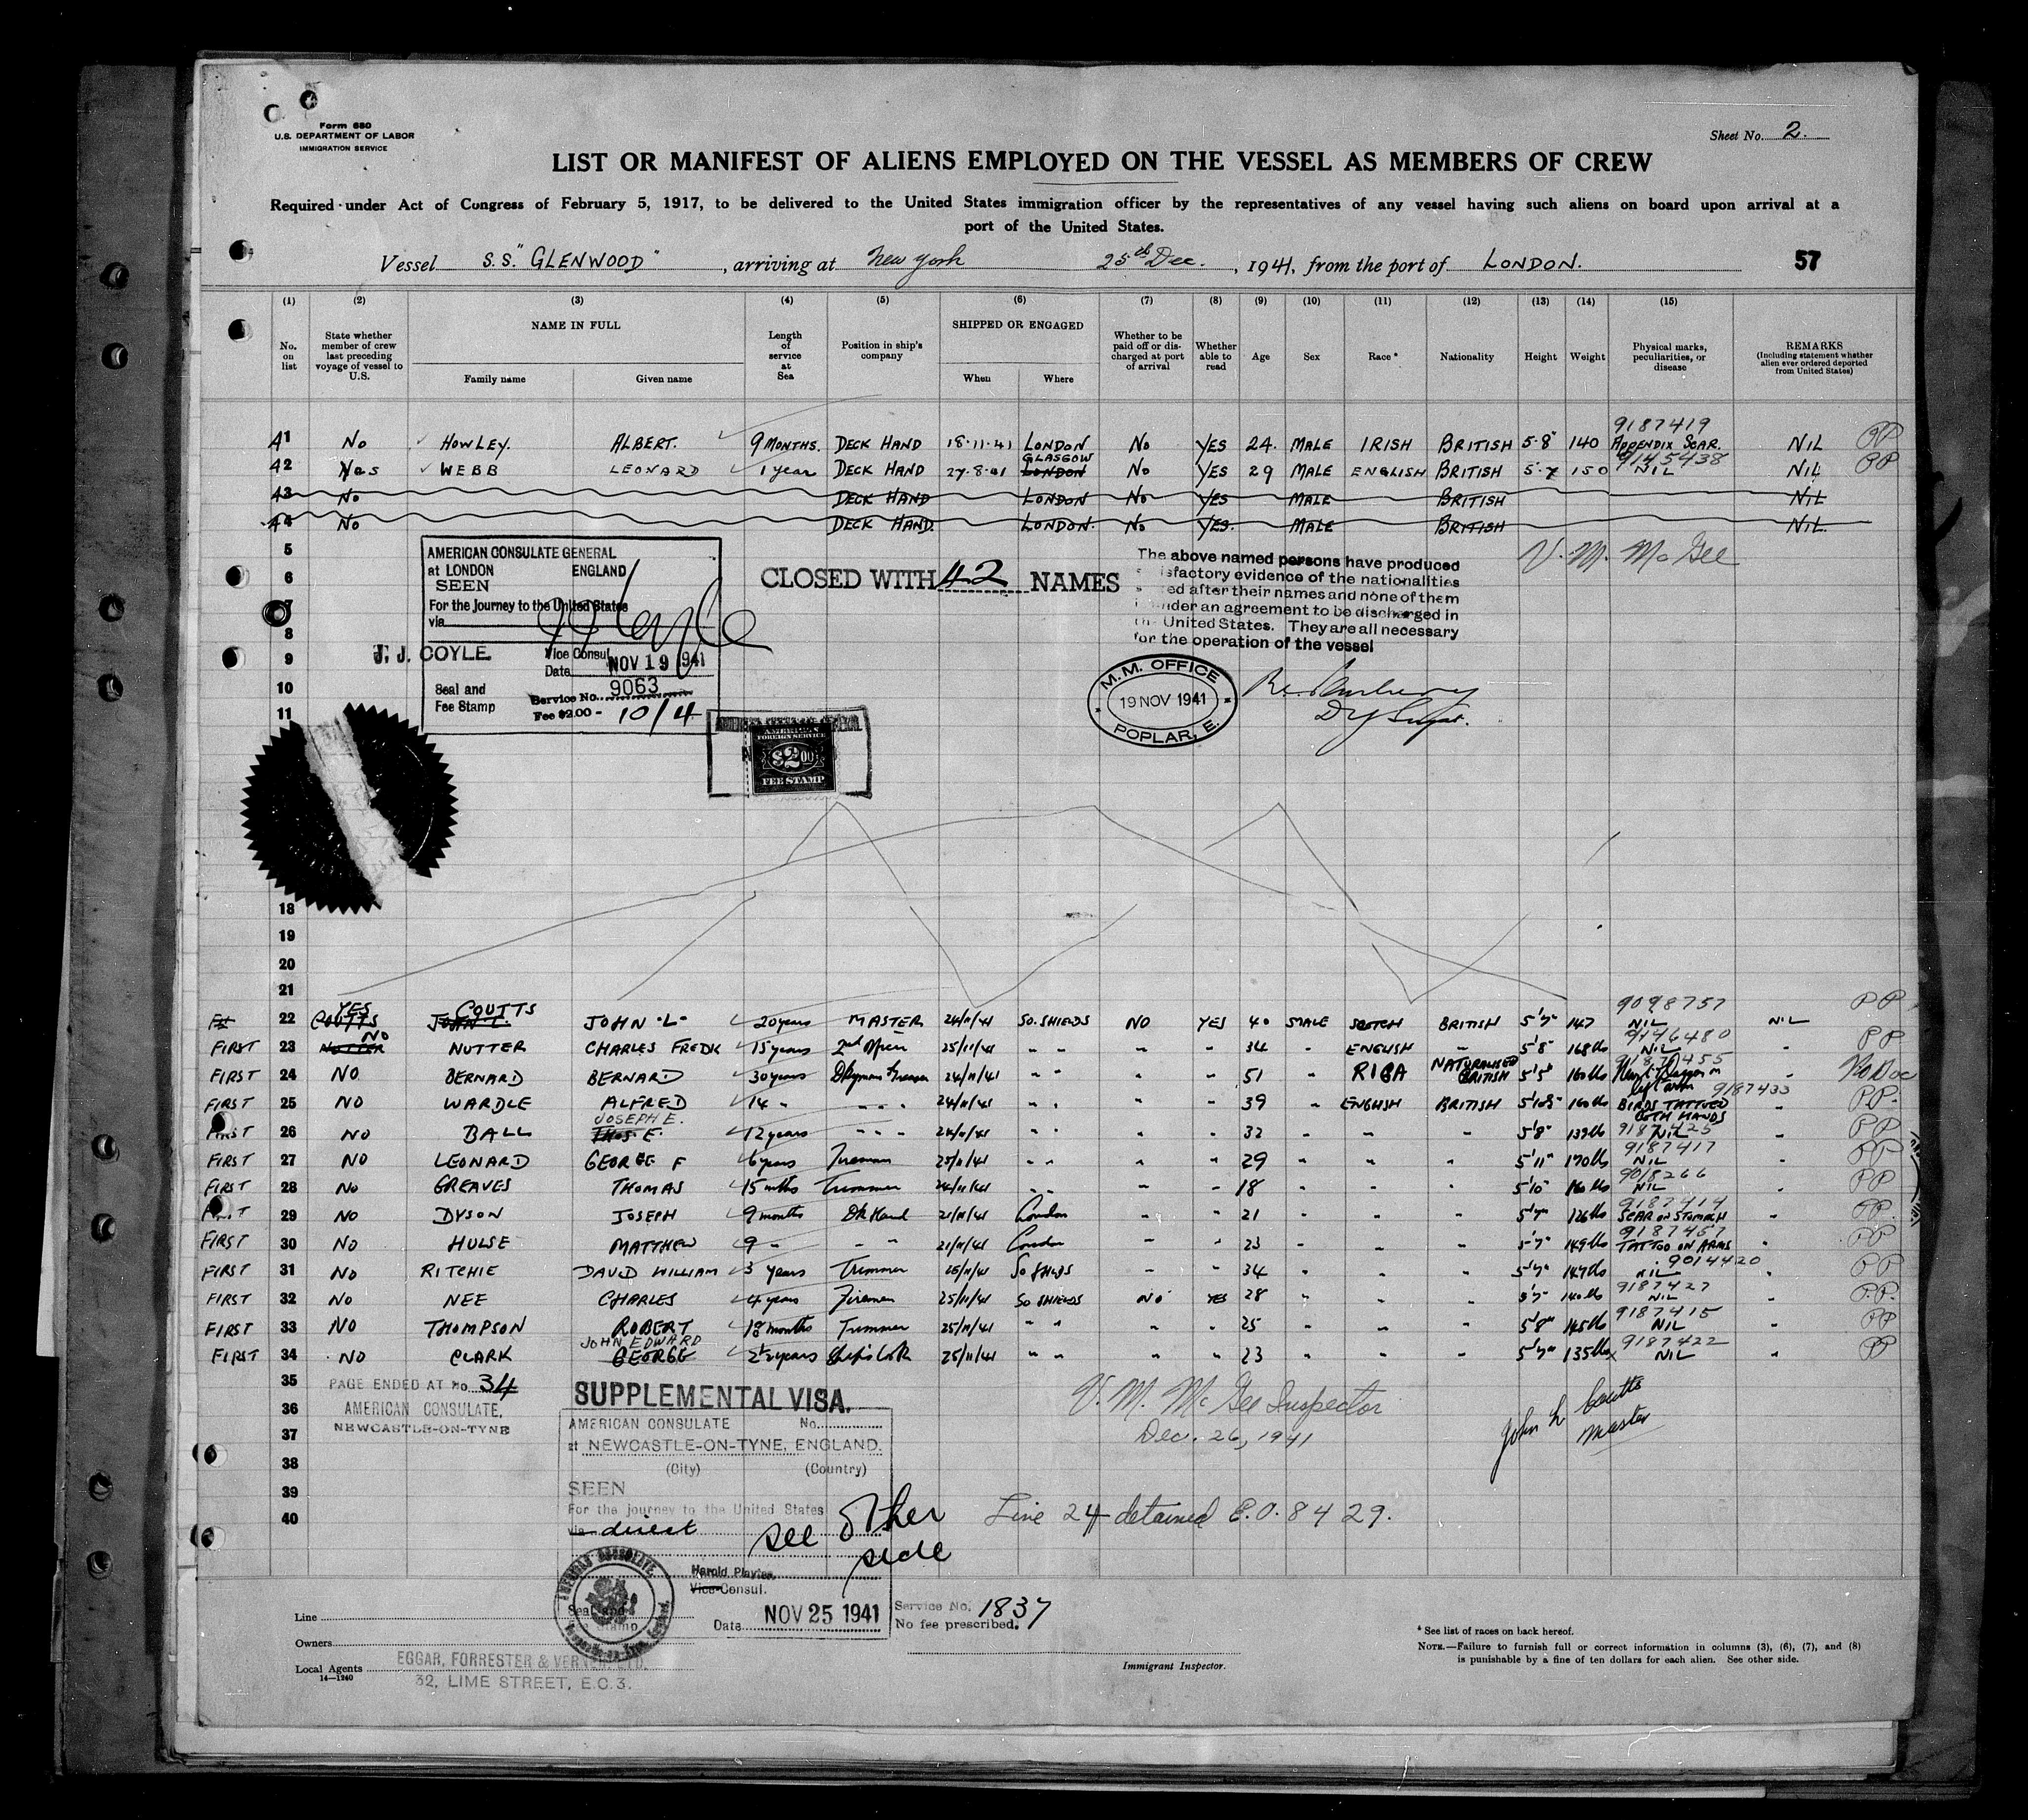 Form 680
U.S. DEPARTMENT OF LABOR
IMMIGRATION SERVICE
Sheet No. 2.
LIST OR MANIFEST OF ALIENS EMPLOYED ON THE VESSEL AS MEMBERS OF CREW
Required under Act of Congress of February 5, 1917, to be delivered to the United States immigration officer by the representatives of any vessel having such aliens on board upon arrival at a
port of the United States.
Vessel S.S. "GLENWOOD", arriving at New York 25th Dec., 1941, from the port of LONDON. 57
(1) (2) (3) (4) (5) (6) (7) (8) (9) (10) (11) (12) (13) (14) (15)
No. on list
State whether member of crew last preceding voyage of vessel to U.S.
NAME IN FULL
Family name
Given name
Length of service at Sea
Position in ship's company
SHIPPED OR ENGAGED
When
Where
Whether to be paid off or discharged at port of arrival
Whether able to read
Age
Sex
Race *
Nationality
Height
Weight
Physical marks, peculiarities, or disease
REMARKS
(Including statement whether alien ever ordered deported from United States)
9187419
A1 No HOWLEY. ALBERT. 9 MONTHS. DECK HAND 18-11-41 LONDON No YES 24. MALE IRISH BRITISH 5-8" 140 APPENDIX SCAR. NIL PP
GLASGOW 9145438
A2 Yes WEBB LEONARD 1 year DECK HAND 27-8-41 LONDON No YES 29 MALE ENGLISH BRITISH 5-7 150 NIL NIL PP
A3 No DECK HAND LONDON No YES MALE BRITISH NIL
A4 No DECK HAND. LONDON. No YES. MALE BRITISH NIL.
V. M. McGee
5
6
7
8
9
10
11
AMERICAN CONSULATE GENERAL
at LONDON ENGLAND
SEEN
For the journey to the United States
via
J. J. COYLE
Vice Consul
Date NOV 19 1941
Seal and
Fee Stamp
Service No. 9063
Fee $2.00 - 10/4
CLOSED WITH 42 NAMES
The above named persons have produced
satisfactory evidence of the nationalities
after their names and none of them
under an agreement to be discharged in
United States. They are all necessary
for the operation of the vessel
M.M. OFFICE
19 NOV 1941
POPLAR, E.
AMERICAN
FOREIGN SERVICE
$2.00
FEE STAMP
18
19
20
21
YES COUTTS 9098757 PP
22 COUTTS JOHN L. JOHN "L" 20 years MASTER 24/11/41 SO. SHIELDS NO YES 40 MALE SCOTCH BRITISH 5'7" 147 NIL NIL
NO 9146480 PP
FIRST 23 NUTTER NUTTER CHARLES FREDK 15 years 25/11/41 " " - - 34 - ENGLISH - 5'8" 168 lbs NIL -
9187455
FIRST 24 NO BERNARD BERNARD 30 years 24/11/41 " " - - 51 - RIGA NATURALISED BRITISH 5'5" 160 lbs left arm No Doc
9187433
FIRST 25 NO WARDLE ALFRED 14 - - - - 24/11/41 - - - - 39 - ENGLISH BRITISH 160 lbs BIRDS TATTOED BOTH HANDS - PP.
JOSEPH E.
FIRST 26 NO BALL THOS. E. 12 years - - - 24/11/41 - - - - 32 - - - 5'8" 139 lbs 9187425 NIL - PP
9187417
FIRST 27 NO LEONARD GEORGE F 6 years Fireman 25/11/41 - - - - 29 - - - 5'11" 170 lbs NIL - PP
9018266
FIRST 28 NO GREAVES THOMAS 15 mths Trimmer 24/11/41 - - - - 18 - - - 5'10" 160 lbs NIL PP
9187414
FIRST 29 NO DYSON JOSEPH 9 months Dk Hand 21/11/41 London - - 21 - - - 5'7" 126 lbs SCAR ON STOMACH - PP.
9187457
FIRST 30 NO HULSE MATTHEW 9 - - - 21/11/41 London - - 23 - - - 5'7" 149 lbs TATTOO ON ARMS - PP
9014420
FIRST 31 NO RITCHIE DAVID WILLIAM 3 years Trimmer 25/11/41 So SHIELDS - - 34 - - - 5'7" 147 lbs NIL - PP
9187427
FIRST 32 NO NEE CHARLES 4 years Fireman 25/11/41 SO SHIELDS NO YES 28 - - - 5'7" 140 lbs NIL - P.P.
9187415
FIRST 33 NO THOMPSON ROBERT 18 months Trimmer 25/11/41 " " - - 25 - - - 5'8" 145 lbs NIL - PP
JOHN EDWARD 9187422
FIRST 34 NO CLARK GEORGE 2½ years Ship's Cook 25/11/41 " " - - 23 - - - 5'7" 135 lbs NIL - PP
35
36
37
38
39
40
PAGE ENDED AT No. 34
AMERICAN CONSULATE,
NEWCASTLE-ON-TYNE
SUPPLEMENTAL VISA.
AMERICAN CONSULATE No.
at NEWCASTLE-ON-TYNE, ENGLAND.
(City) (Country)
SEEN
For the journey to the United States
via direct
see other
side
Harold Playter,
Vice-Consul.
Seal and
Fee Stamp
Date NOV 25 1941
AMERICAN CONSULATE
Service No. 1837
No fee prescribed.
V. M. McGee Inspector
Dec. 26, 1941
John L Coutts
Master
Line 24 detained E.O. 8429.
Line
Owners
Local Agents EGGAR, FORRESTER & VERNER LTD.
32, LIME STREET, E.C.3.
14—1240
Immigrant Inspector.
* See list of races on back hereof.
NOTE.—Failure to furnish full or correct information in columns (3), (6), (7), and (8)
is punishable by a fine of ten dollars for each alien. See other side.